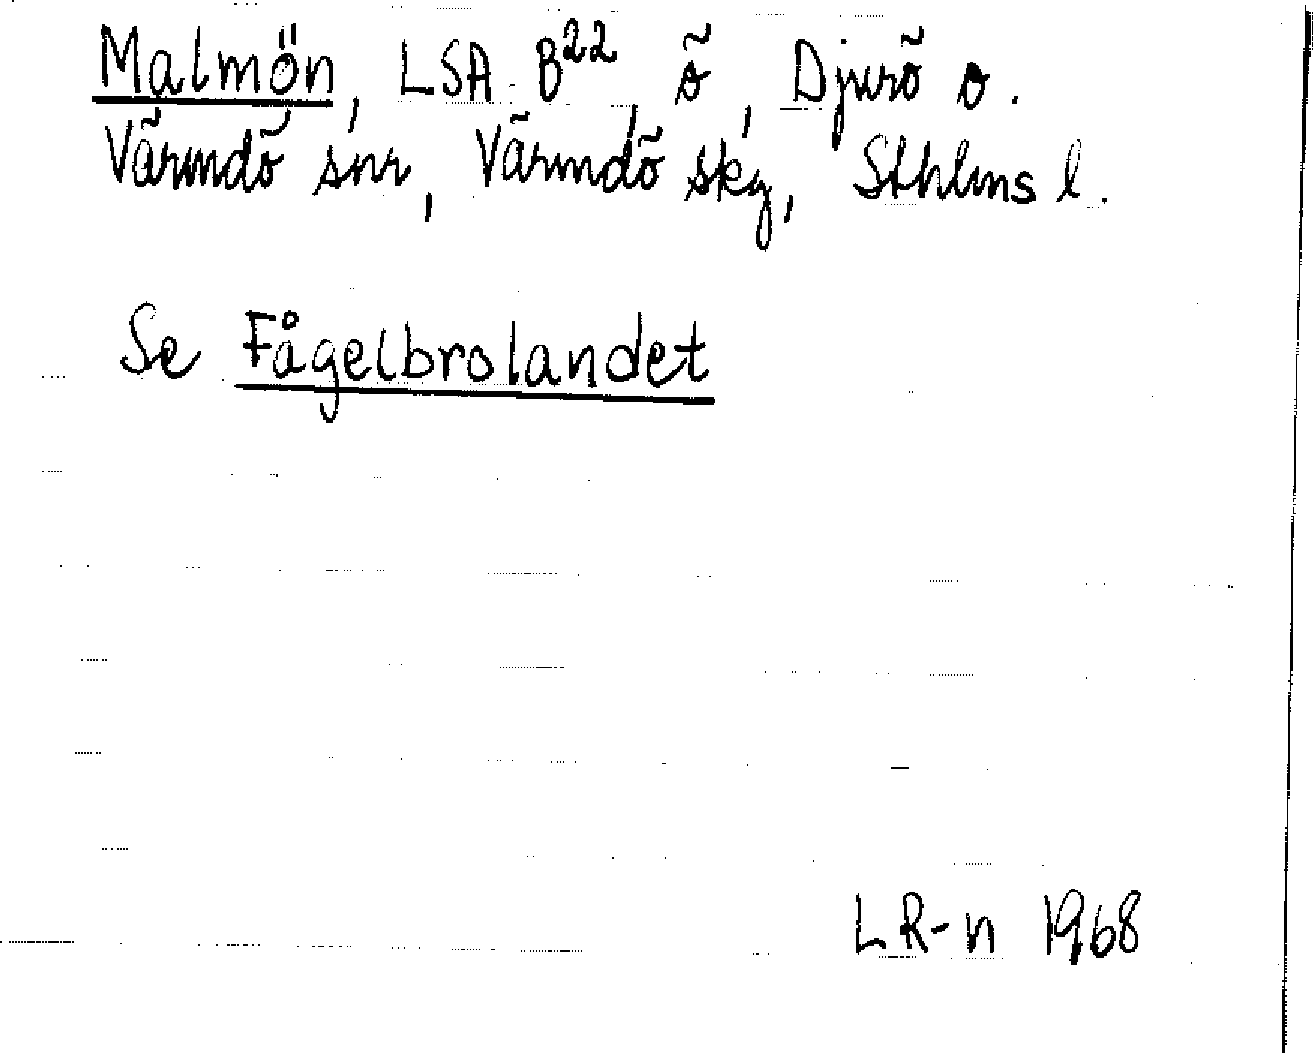 Malmön, LSA B²², ö, Djurö o.
Värmdö snr, Värmdö skg, Sthlms l.
Se Fågelbrolandet
LR-n 1968